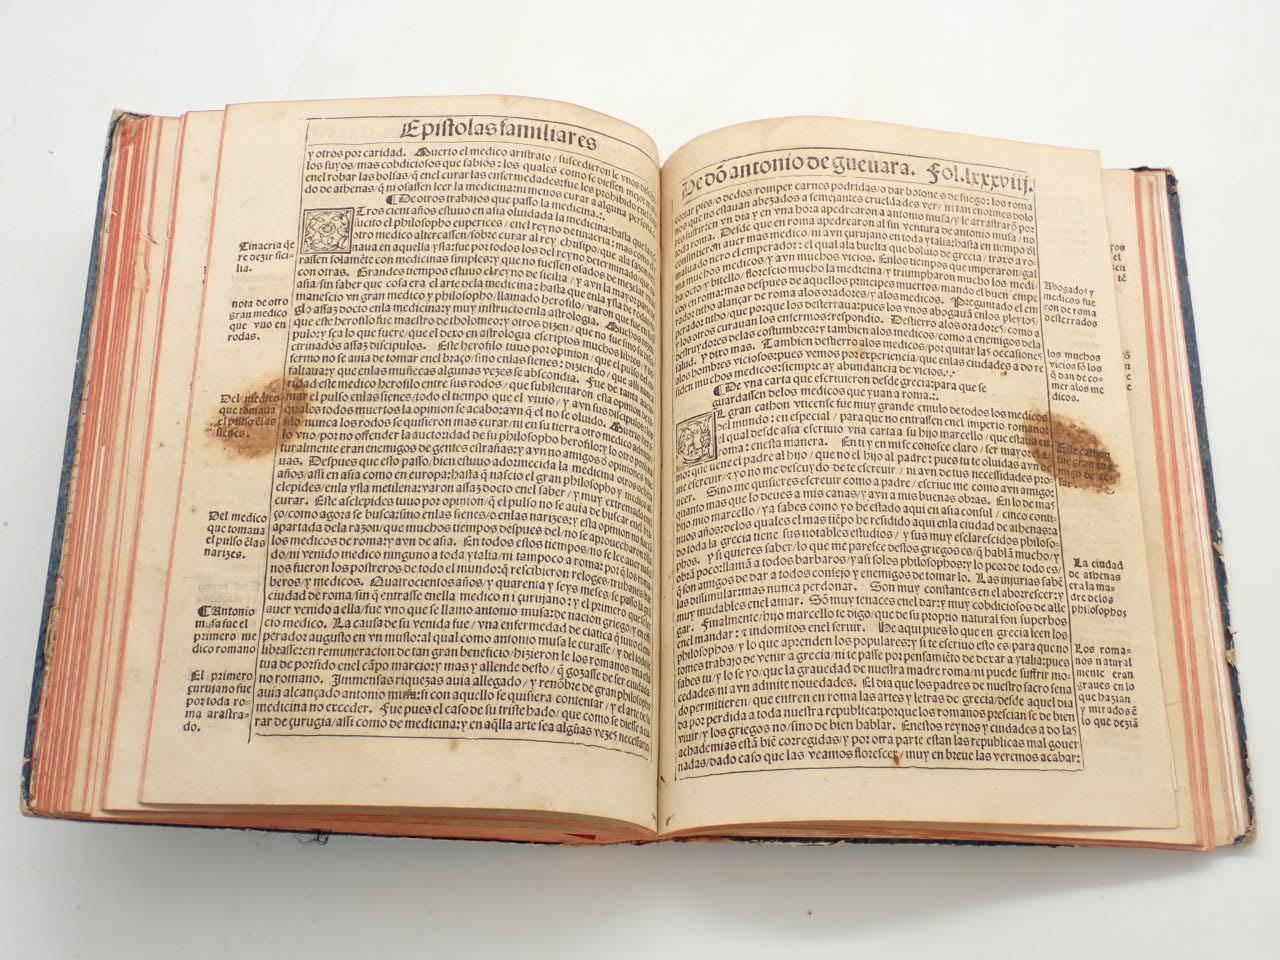 Epistolas familiares
y otros por caridad. Muerto el medico aristrato / suscedieron le vnos
los suyos / mas cobdiciosos que sabios: los quales como se diessen mejor
en el robar las bolsas / q̃ en el curar las enfermedades: fue les prohibido
do de athenas / q̃ ni osassen leer la medicina: ni menos curar a alguna persona.
¶ De otros trabajos que passo la medicina.
OTros cien años estuuo en asia oluidada la medicina: hasta que
el philosopho euperices / en el reyno de tinacria: mas como el y
otro medico altercassen / sobre curar al rey chrisipo / que a la sazon
naua en aquella ysla: fue por todos los del reyno determinado / que
rassen solamẽte con medicinas simples: y que no fuessen osados de mezclar
con otras. Grandes tiempos estuuo el reyno de sicilia / y avn la mayor parte
asia / sin saber que cosa era el arte de la medicina: hasta que en la ysla de
manescio vn gran medico y philosopho / llamado herofilo / varon que fue en
glo assaz docto en la medicina: y muy instructo en la astrologia. Muchos
que este herofilo fue maestro de tholomeo: y otros dizen / que no fue sino
pulo: y sea lo que fuere / que el dexo en astrologia escriptos muchos libros
ctrinados assaz discipulos. Este herofilo tuuo por opinion / que el pulso del en
fermo no se auia de tomar en el braço / sino en las sienes: diziendo / que alli nunca
faltaua: y que en las muñecas algunas vezes se abscondia. Fue de tanta aucto
ridad este medico herofilo entre sus rodos / que substentaron esta opinion de
mar el pulso en las sienes / todo el tiempo que el viuio / y avn sus discipulos
quales todos muertos la opinion se acabo: avn q̃ el no se oluido. Muerto
filo nunca los rodos se quisieron mas curar / ni en su tierra otro medico admitir
lo vno / por no offender la auctoridad de su philosopho herofilo: y lo otro por
turalmente eran enemigos de gentes estrañas: y avn no amigos d̃ opiniones
uas. Despues que esto passo / bien estuuo adormecida la medicina otros ochenta
años / assi en asia como en europa: hasta q̃ nascio el gran philosopho y medico as
clepides / en la ysla metilena: varon assaz docto en el saber / y muy extremado
curar. Este asclepides tuuo por opinion / q̃ el pulso no se auia de buscar en el
ço / como agora se busca: sino en las sienes / o en las narizes: y esta opinion no fue
apartada de la razon / que muchos tiempos despues del / no se aprouechassen
los medicos de roma: y avn de asia. En todos estos tiempos / no se lee auer
do / ni venido medico ninguno a toda ytalia / ni tampoco a roma: por q̃ los roma
nos fueron los postreros de todo el mundo: q̃ rescibieron reloges / truhanes
beros / y medicos. Quatrocientos años / y quarenia y seys meses / se passo la grã
ciudad de roma / sin q̃ entrasse en ella medico ni çurujano: y el primero que
auer venido a ella / fue vno que se llamo antonio musa: de nacion griego / y en offi
cio medico. La causa de su venida fue / vna enfermedad de ciatica q̃ tuuo el em
perador augusto en vn muslo: al qual como antonio musa le curasse / y del todo
librasse: en remuneracion de tan gran beneficio / hizieron le los romanos vna esta
tua de porfido en el cãpo marcio: y mas y allende desto / q̃ gozasse de ser ciudada
no romano. Jmmensas riquezas auia allegado / y renõbre de gran philosopho
auia alcançado antonio musa: si con aquello se quisiera contentar / y el arte de la
medicina no exceder. Fue pues el caso de su triste hado / que como se diesse a cu
rar de çurugia / assi como de medicina: y en aq̃lla arte sea algũas vezes necessario
Tinacria q̃e
re dezir sici-
lia.
nota de otro
gran medico
que vuo en
rodas.
Del medico
que tomaua
el pulso ẽlas
sienes.
Del medico
que tomaua
el pulso ẽlas
narizes.
¶ Antonio
musa fue el
primero me
dico romano
El primero
çurujano fue
por toda ro-
ma arastra-
do.
De dõ antonio de gueuara. Fol. lxxxviij.
cortar pies / o dedos / romper carnes podridas / o dar botones de fuego: los roma
nos que no estauan abezados a semejantes crueldades ver / ni tan enormes dolo
res sufrir: en vn dia y en vna hora apedrearon a antonio musa / y le arrastrarõ por
toda roma. Desde que en roma apedrearon al sin ventura de antonio musa / no
consintieron auer mas medico / ni avn çurujano en toda ytalia: hasta en tiempo dl
maluado nero el emperador: el qual a la buelta que boluio de grecia / traxo a ro-
ma muchos medicos y avn muchos vicios. En los tiempos que imperaron / gal
ba / octo y bitelio / florescio mucho la medicina / y triumpharon mucho los medi-
cos en roma: mas despues de aquellos principes muertos / mando el buen empe
rador titho / alançar de roma a los oradores / y a los medicos. Preguntado el em
perador titho / que porque los desterraua: pues los vnos abogauã en los pleytos /
y los otros curauan los enfermos: respondio. Destierro a los oradores / como a
destruydores de las costumbres: y tambien a los medicos / como a enemigos de la
salud. y dixo mas. Tambien destierro a los medicos / por quitar las occasiones
a los hombres viciosos: pues vemos por experiencia / que en las ciudades a do re
siden muchos medicos: siempre ay abundancia de vicios.
¶ De vna carta que escriuieron desde grecia: para que se
guardassen de los medicos que yuan a roma.
EL gran cathon vticense fue muy grande emulo de todos los medicos
del mundo: en especial / para que no entrassen en el imperio romano:
el qual desde asia escriuio vna carta a su hijo marcello / que estaua en
roma: en esta manera. En ti y en mi se conosce claro / ser mayor el a-
mor que tiene el padre al hijo / que no el hijo al padre: pues tu te oluidas avn de
me escreuir / y yo no me descuydo de te escreuir / ni avn de tus necessidades pro-
ueer. Si no me quisieres escreuir como a padre / escriue me como avn amigo:
quanto mas que lo deues a mis canas / y avn a mis buenas obras. En lo de mas
hijo mio marcello / ya sabes como yo he estado aqui en asia consul / cinco conti-
nuos años: de los quales el mas tiẽpo he residido aqui en la ciudad de athenas: a-
do toda la grecia tiene sus notables estudios / y sus muy esclarescidos philoso-
phos. y si quieres saber / lo que me paresce destos griegos es / q̃ hablã mucho / y
obrã poco: llamã a todos barbaros / y assi solos philosophos: y lo peor de todo es /
q̃ son amigos de dar a todos consejo y enemigos de tomar lo. Las injurias sabẽ
las dissimular: mas nunca perdonar. Son muy constantes en el aborrescer: y
muy mudables en el amar. Sõ muy tenaces en el dar: y muy cobdiciosos de alle
gar. Finalmente / hijo marcello te digo / que de su proprio natural son superbos
en el mandar: e indomitos en el seruir. He aqui pues lo que en grecia leen los
philosophos / y lo que aprenden los populares: y si te escriuo esto es / para que no
tomes trabajo de venir a grecia / ni te passe por pensamiẽto de dexar a ytalia: pues
sabes tu / y lo se yo / que la grauedad de nuestra madre roma / ni puede suffrir mo-
cedades / ni avn admite nouedades. El dia que los padres de nuestro sacro sena
do permitieren / que entren en roma las artes y letras de grecia / desde aquel dia
da por perdida a toda nuestra republica: porque los romanos prescian se de bien
viuir / y los griegos no / sino de bien hablar. En estos reynos y ciudades a do las
achademias estã biẽ corregidas / y por otra parte estan las republicas mal gouer
nadas / dado caso que las veamos florescer / muy en breue las veremos acabar:
Abogados y
medicos fue
ron de roma
desterrados
los muchos
vicios sõ los
q̃ dan de co-
mer a los me
dicos.
Este cathon
fue gran ene
migo de
La ciudad
de athenas
era la ma-
dre de los
philosophos
Los roma-
nos natural
mente eran
graues en lo
que hazian
y mirados ẽ
lo que deziã